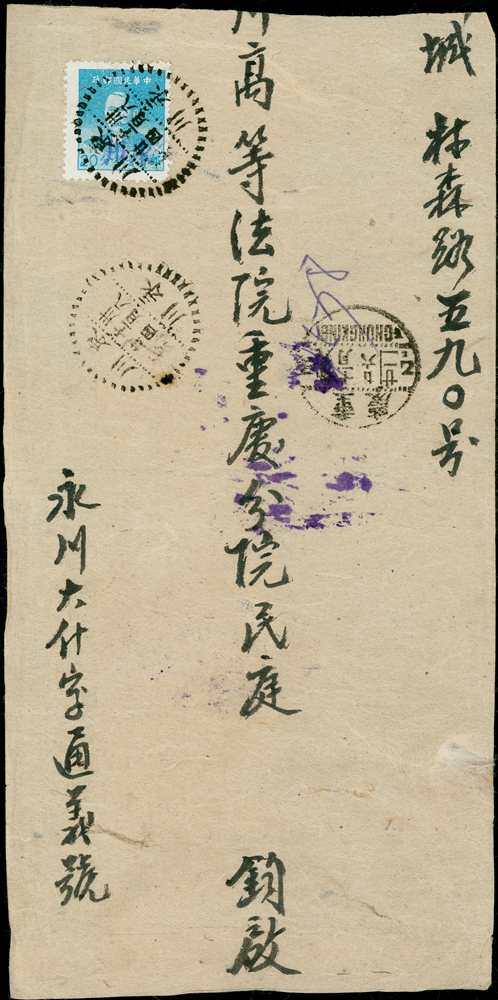 城 林森路五九〇号
川高等法院重慶分院民庭 鈞啟
永川大什字通義號
中華民國郵政
20
永川
CHUNGKING
重慶